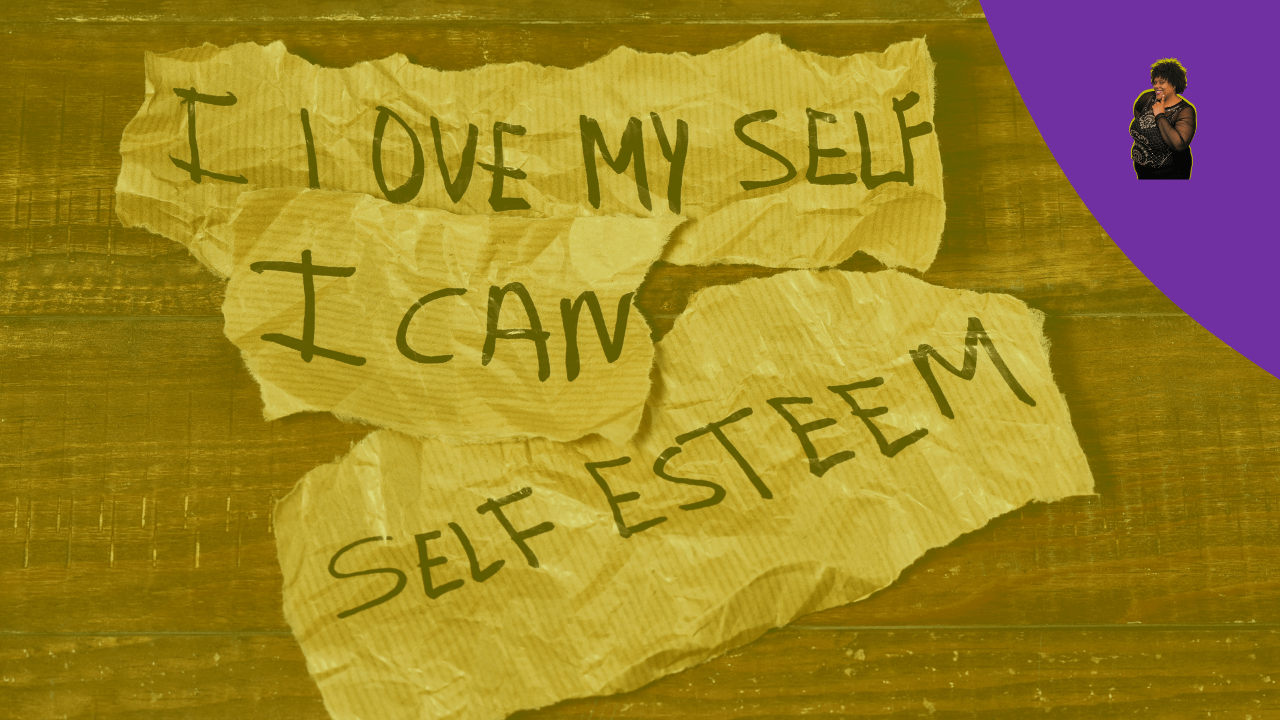 I lOVE MY SELF
I CAN
SELF ESTEEM